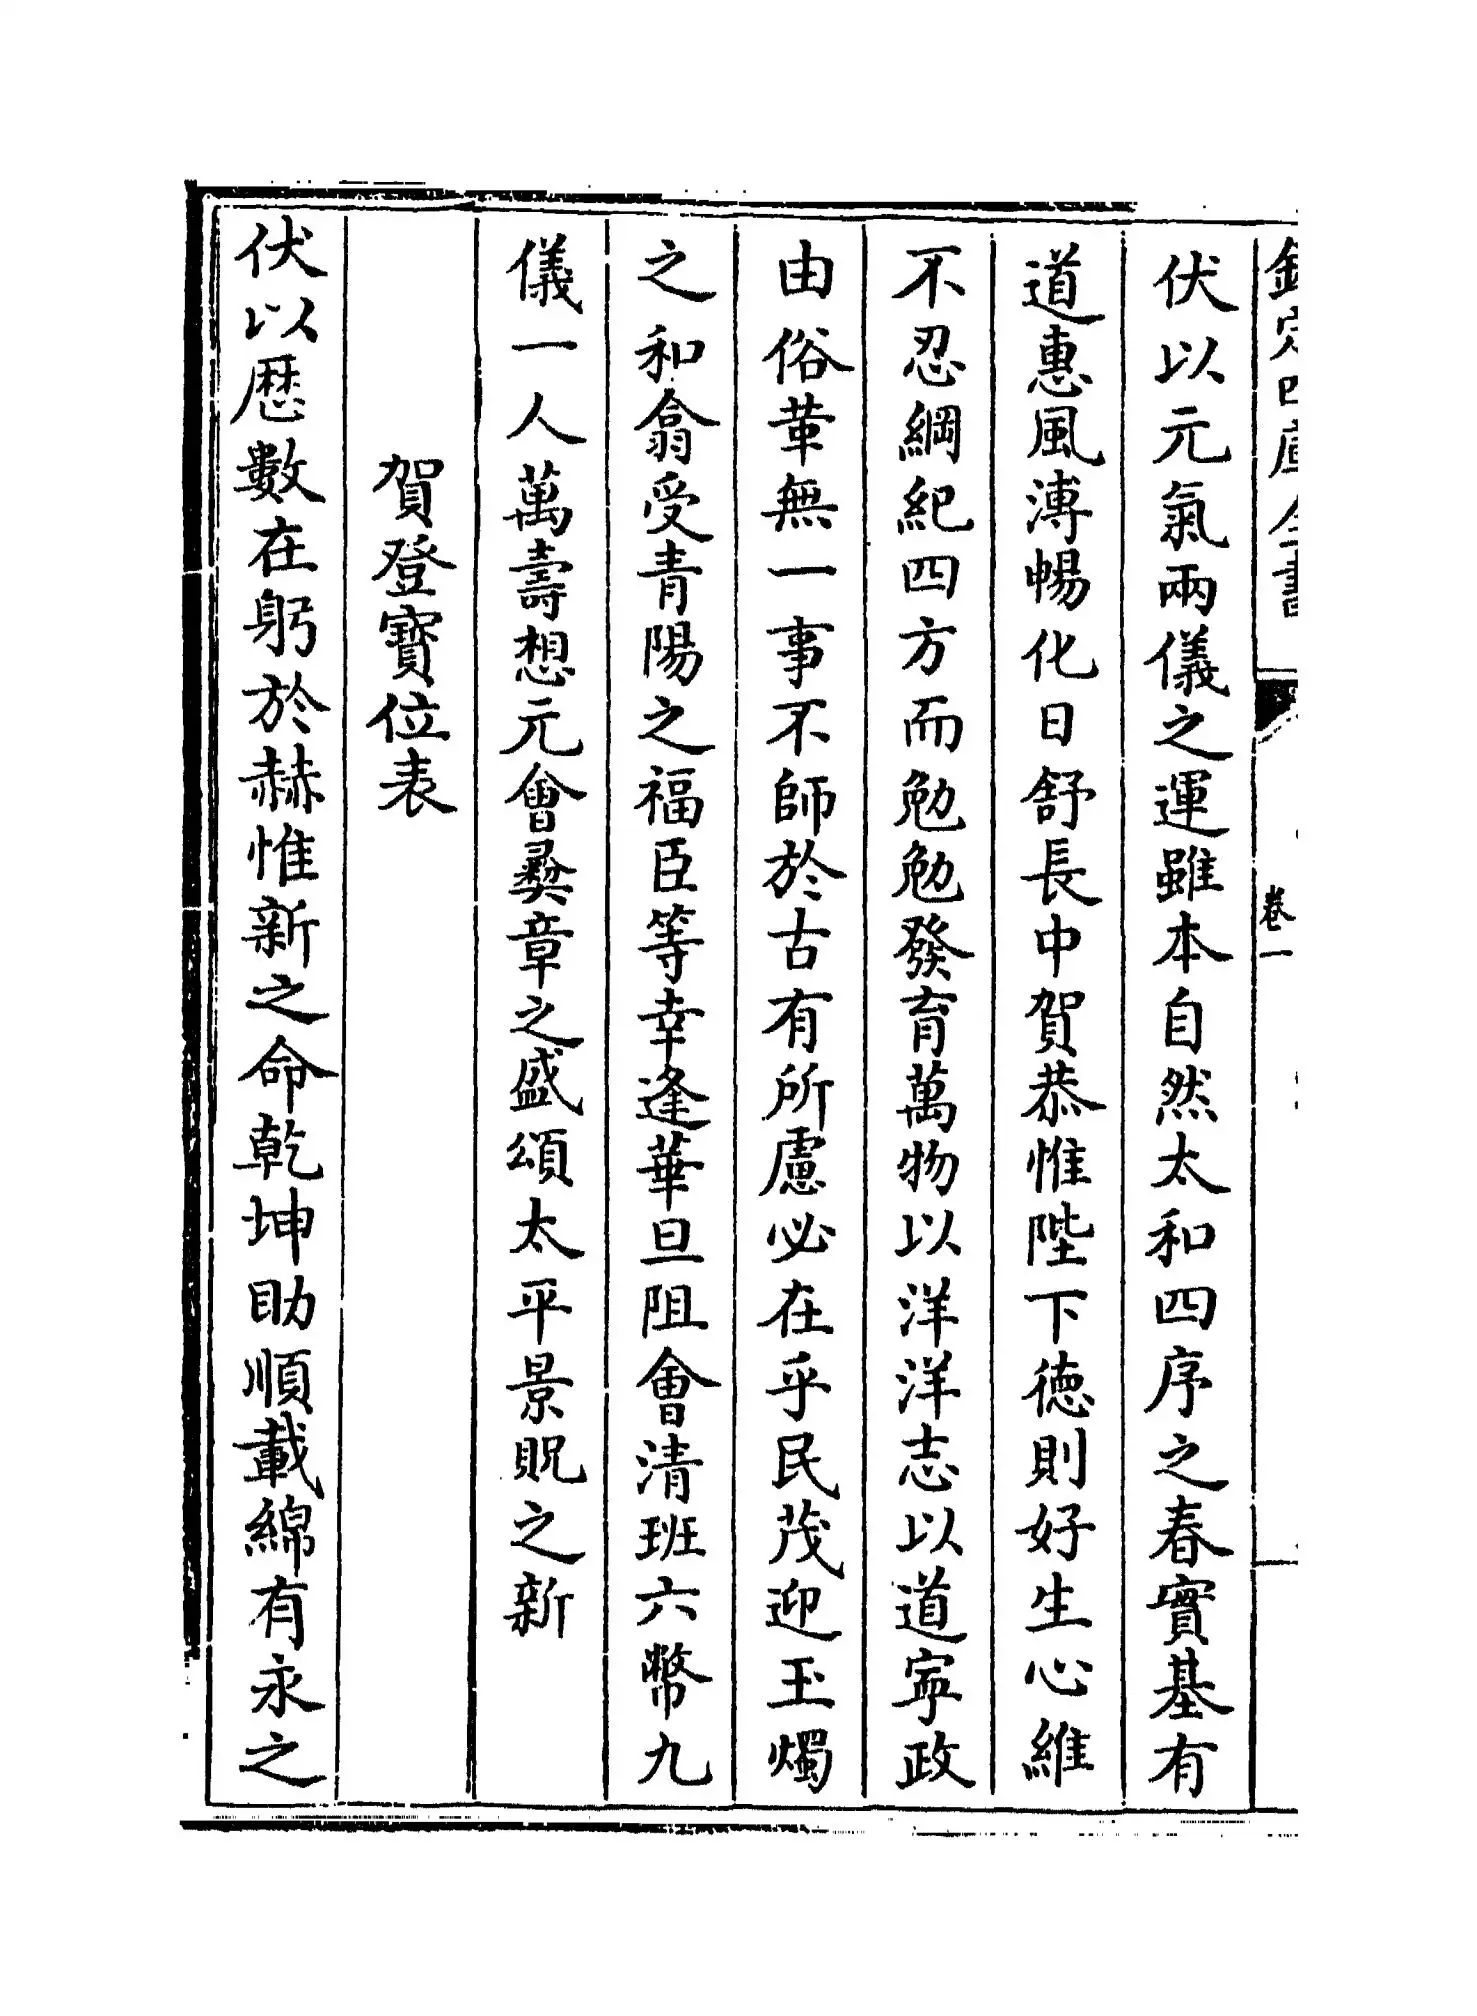 欽定四庫全書
卷一
伏以元氣兩儀之運雖本自然太和四序之春實基有
道惠風溥暢化日舒長中賀恭惟陛下徳則好生心維
不忍綱紀四方而勉勉發育萬物以洋洋志以道寧政
由俗革無一事不師於古有所慮必在乎民茂迎玉燭
之和翕受青陽之福臣等幸逢華旦阻會清班六幣九
儀一人萬壽想元會彜章之盛頌太平景貺之新
賀登寳位表
伏以厯數在躬於赫惟新之命乾坤助順載綿有永之